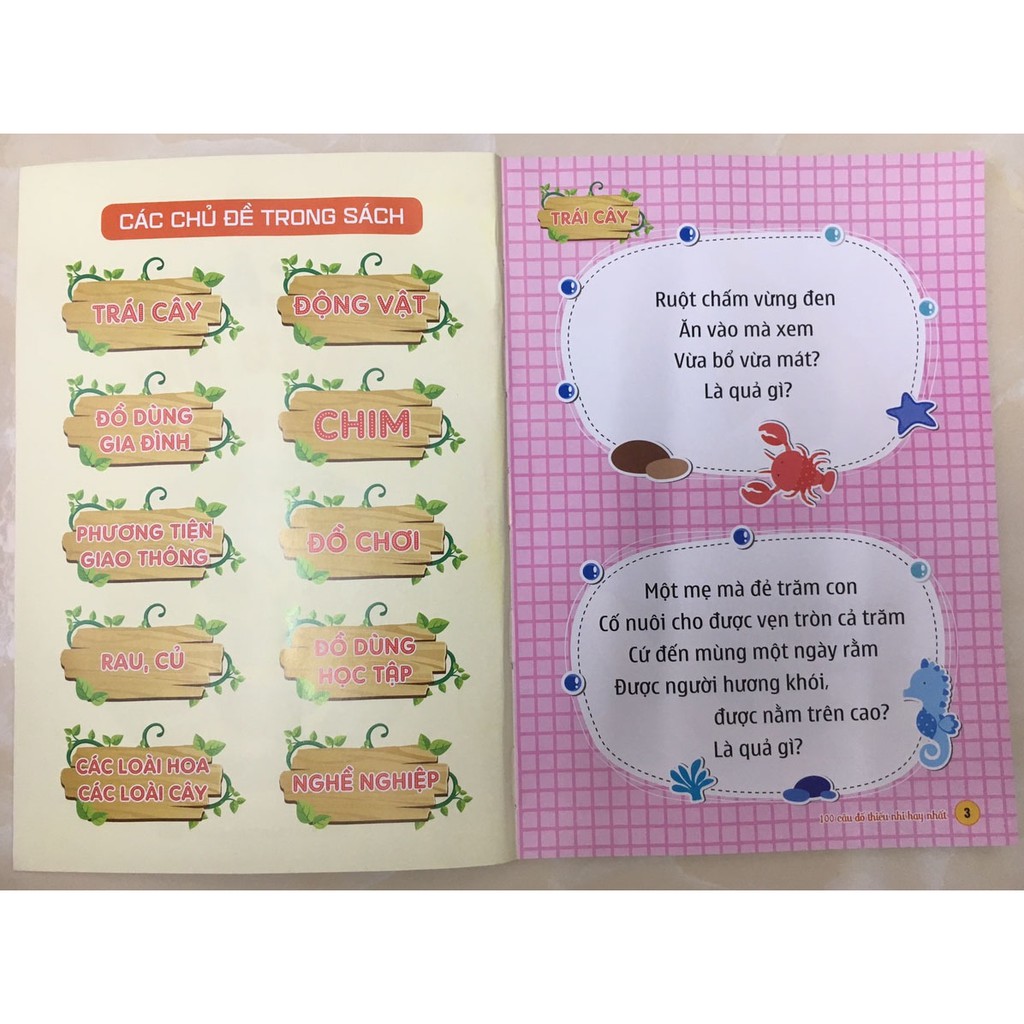 CÁC CHỦ ĐỀ TRONG SÁCH
TRÁI CÂY
ĐỘNG VẬT
ĐỒ DÙNG
GIA ĐÌNH
CHIM
PHƯƠNG TIỆN
GIAO THÔNG
ĐỒ CHƠI
RAU, CỦ
ĐỒ DÙNG
HỌC TẬP
CÁC LOÀI HOA
CÁC LOÀI CÂY
NGHỀ NGHIỆP
TRÁI CÂY
Ruột chấm vừng đen
Ăn vào mà xem
Vừa bổ vừa mát?
Là quả gì?
Một mẹ mà đẻ trăm con
Cố nuôi cho được vẹn tròn cả trăm
Cứ đến mùng một ngày rằm
Được người hương khói,
được nằm trên cao?
Là quả gì?
100 câu đố thiếu nhi hay nhất 3